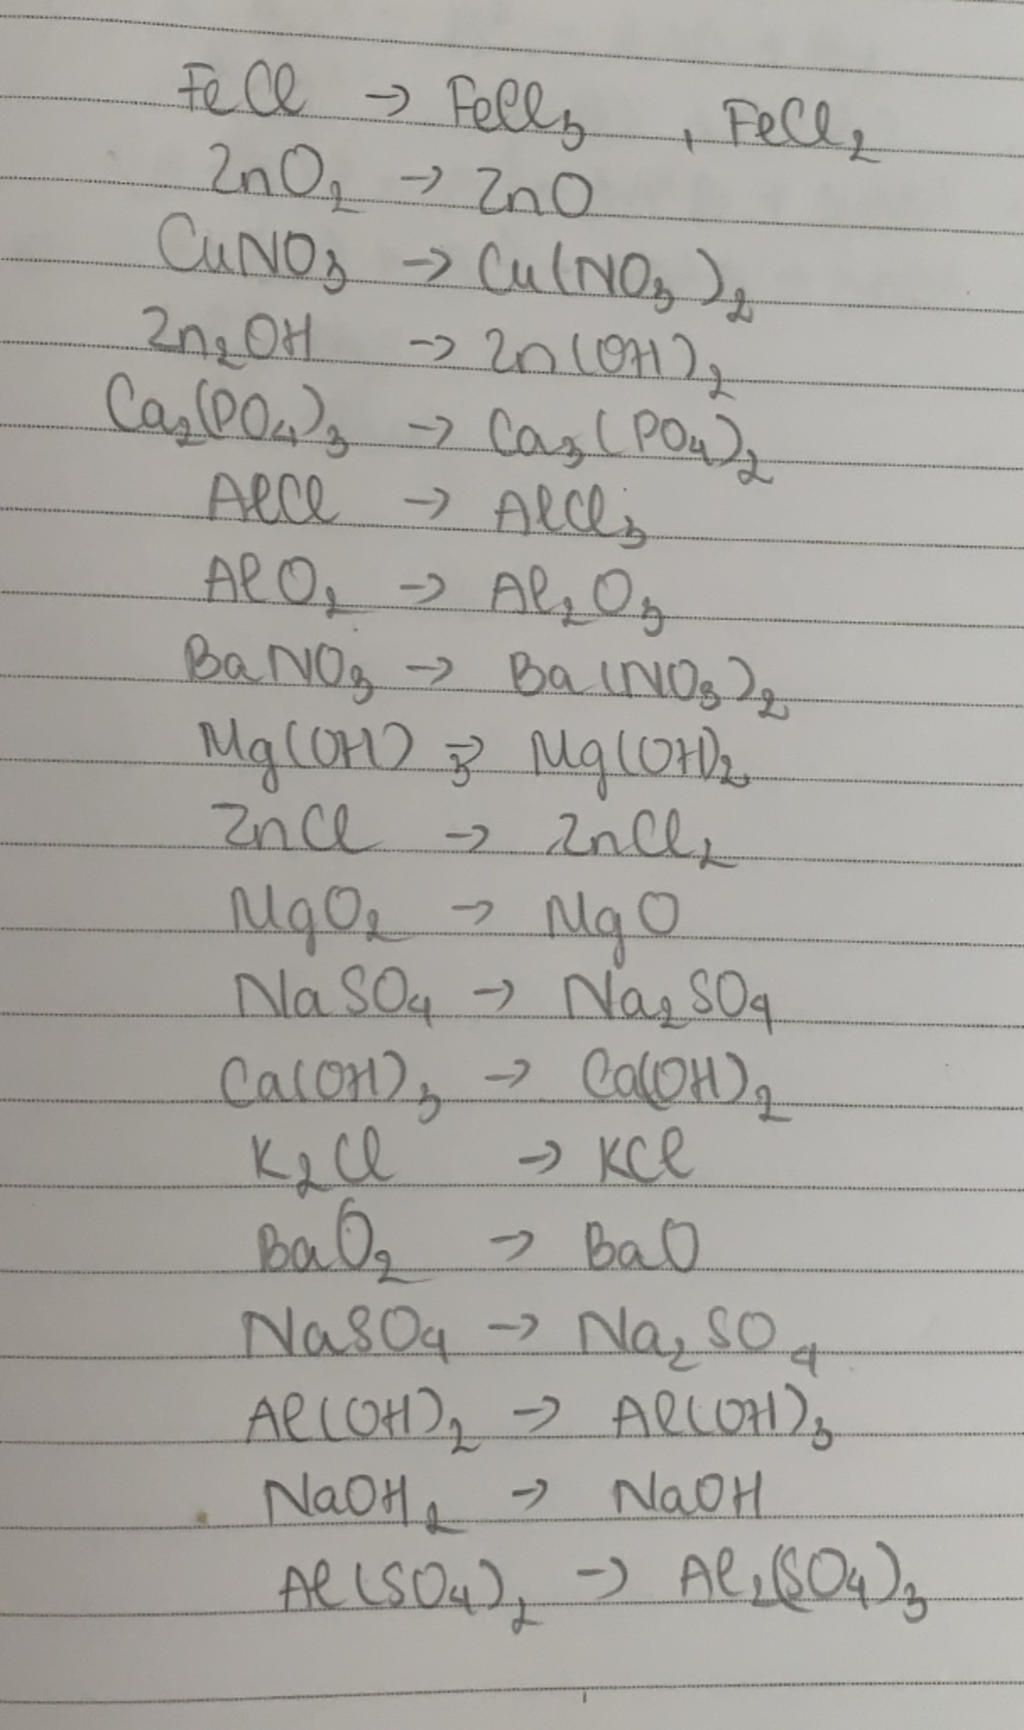 FeCl → FeCl₃ , FeCl₂
ZnO₂ → ZnO
CuNO₃ → Cu(NO₃)₂
Zn₂OH → Zn(OH)₂
Ca₂(PO₄)₃ → Ca₃(PO₄)₂
AlCl → AlCl₃
AlO₂ → Al₂O₃
BaNO₃ → Ba(NO₃)₂
Mg(OH)₃ → Mg(OH)₂
ZnCl → ZnCl₂
MgO₂ → MgO
NaSO₄ → Na₂SO₄
Ca(OH)₃ → Ca(OH)₂
K₂Cl → KCl
BaO₂ → BaO
NaSO₄ → Na₂SO₄
Al(OH)₂ → Al(OH)₃
NaOH₂ → NaOH
Al(SO₄)₂ → Al₂(SO₄)₃